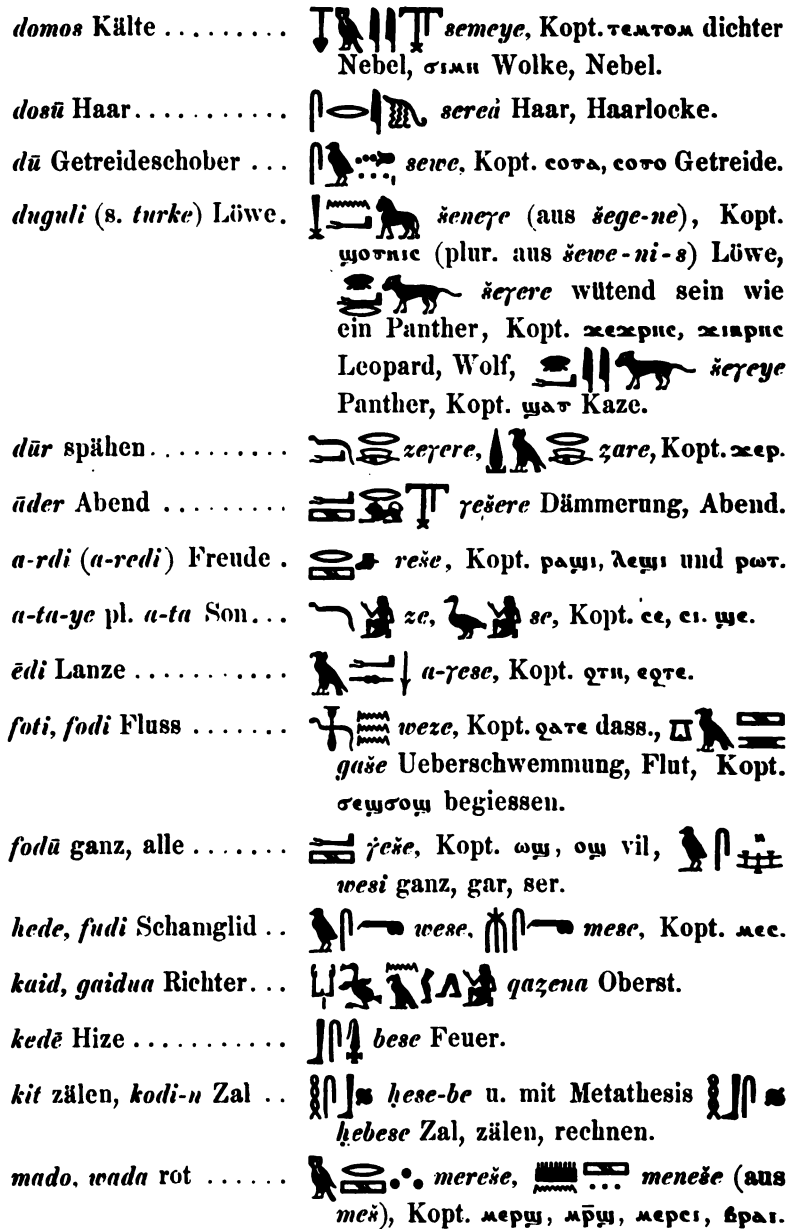 domos Kälte ......... semeye, Kopt. ⲧⲉⲙⲧⲟⲙ dichter
Nebel, ϭⲓⲙⲏ Wolke, Nebel.
dosū Haar........... sereȧ Haar, Haarlocke.
dū Getreideschober ... sewe, Kopt. ⲥⲟⲩⲁ, ⲥⲟⲩⲟ Getreide.
duguli (s. turke) Löwe. šeneγe (aus šege-ne), Kopt.
ϣⲟⲩⲛⲓⲥ (plur. aus šewe-ni-s) Löwe,
šeγere wütend sein wie
ein Panther, Kopt. ϫⲉϫⲣⲏⲥ, ϫⲓⲁⲣⲏⲥ
Leopard, Wolf, šeγeye
Panther, Kopt. ϣⲁⲩ Kaze.
dūr spähen.......... zeγere, z̦are, Kopt. ϫⲉⲣ.
ūder Abend ......... γešere Dämmerung, Abend.
a-rdi (a-redi) Freude . reše, Kopt. ⲣⲁϣⲓ, ⲗⲉϣⲓ und ⲣⲱⲧ.
a-ta-ye pl. a-ta Son... ze, se, Kopt. ⲥⲉ, ⲥⲓ. ϣⲉ.
ēdi Lanze ........... a-γese, Kopt. ϩⲧⲏ, ⲉϩⲧⲉ.
foti, fodi Fluss ....... weze, Kopt. ϩⲁⲧⲉ dass.,
gaše Ueberschwemmung, Flut, Kopt.
ϭⲉϣϭⲟϣ begiessen.
fodū ganz, alle ....... γ̇eše, Kopt. ⲱϣ, ⲟϣ vil,
wesi ganz, gar, ser.
hede, fudi Schamglid .. wese, mese, Kopt. ⲙⲉⲥ.
kaid, gaidua Richter... qaz̦ena Oberst.
kedē Hize ........... bese Feuer.
kit zälen, kodi-n Zal .. ḥese-be u. mit Metathesis
ḥebese Zal, zälen, rechnen.
mado, wada rot ...... mereše, meneše (aus
meš), Kopt. ⲙⲉⲣϣ, ⲙⲣ̅ϣ, ⲙⲉⲣⲥⲓ, ⲃⲣⲁⲓ.